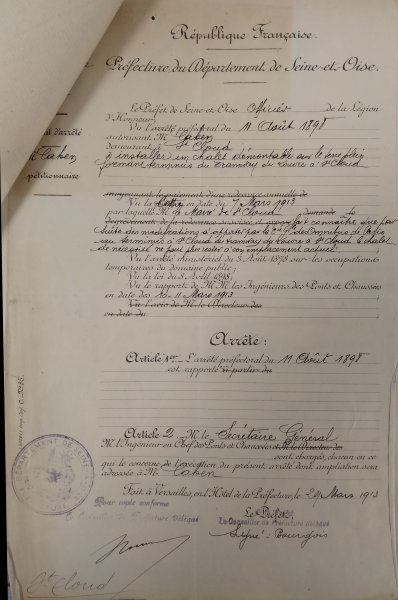 République Française.
Préfecture du Département de Seine-et-Oise.
Le Préfet de Seine-et-Oise Officier de la Légion
d'Honneur,
Vu l'arrêté préfectoral du 11 Août 1898
autorisant M. Cahen
demeurant à St Cloud
à installer un chalet démontable sur le
formant terminus du Tramway du Louvre à St Cloud
moyennant le paiement d'une redevance annuelle de
Vu la lettre en date du 7 Mars 1913
par laquelle M. le Maire de St Cloud demande la
fait connaître que par
suite des modifications apportées par la Cie Gle des Omnibus de Paris
au terminus à St Cloud du tramway du Louvre à St Cloud le chalet
de nécessité ne peut plus rester à son emplacement actuel
Vu l'arrêté ministériel du 3 Août 1878 sur les occupations
temporaires du domaine public;
Vu la loi du 8 Août 1898;
Vu le rapport de M.M. les Ingénieurs des Ponts et Chaussées
en date des 10-11 Mars 1913
Vu l'avis de M. le Directeur des
en date du
Arrête:
Article 1er. L'arrêté préfectoral du 11 Août 1898
est rapporté à partir du
Article 2. M. le Secrétaire Général
M. l'Ingénieur en Chef des Ponts et Chaussées et M. le Directeur de
sont chargés, chacun en ce
qui le concerne de l'exécution du présent arrêté dont ampliation sera
adressée à M. Cahen
Fait à Versailles, en l'Hôtel de la Préfecture, le 20 Mars 1913
Le Préfet,
Pour copie conforme
Le Conseiller de Préfecture délégué
Le Conseiller de Préfecture délégué
Signé: Bourgeois
St Cloud
d'arrêté
Cahen
pétitionnaire